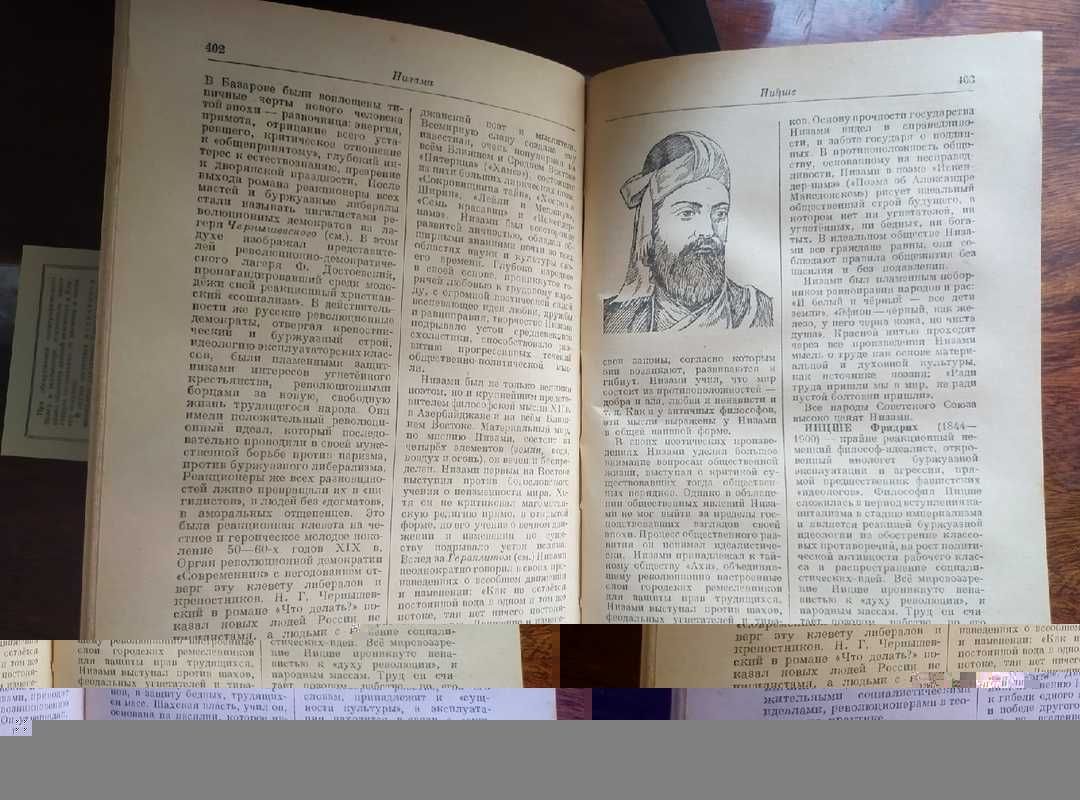 402
Низами
В Базарове были воплощены ти-
пичные черты нового человека
той эпохи — разночинца: энергия,
прямота, отрицание всего уста-
ревшего, критическое отношение
к «общепринятому», глубокий ин-
терес к естествознанию, презрение
к дворянской праздности. После
выхода романа реакционеры всех
мастей и буржуазные либералы
стали называть нигилистами ре-
волюционных демократов из ла-
геря Чернышевского (см.). В этом
духе изображал представите-
лей революционно-демократиче-
ского лагеря Ф. Достоевский,
пропагандировавший среди моло-
дёжи свой реакционный христиан-
ский «социализм». В действитель-
ности же русские революционные
демократы, отвергая крепостни-
ческий и буржуазный строй,
идеологию эксплуататорских клас-
сов, были пламенными защит-
никами интересов угнетённого
крестьянства, революционными
борцами за новую, свободную
жизнь трудящегося народа. Они
имели положительный революци-
онный идеал, который последо-
вательно проводили в своей муже-
ственной борьбе против царизма,
против буржуазного либерализма.
Реакционеры же всех разновидно-
стей лживо превращали их в «ни-
гилистов», в людей без «догматов»,
в аморальных отщепенцев. Это
была реакционная клевета на че-
стное и героическое молодое поко-
ление 50—60-х годов XIX в.
Орган революционной демократии
«Современник» с негодованием от-
верг эту клевету либералов и
крепостников. Н. Г. Чернышев-
ский в романе «Что делать?» по-
казал новых людей России не
нигилистами, а людьми с
джанский поэт и мыслитель.
Всемирную славу создала ему
известная, очень популярная на
всём Ближнем и Среднем Востоке
«Пятерица» («Хамсэ»), состоящая
из пяти больших лирических поэм:
«Сокровищница тайн», «Хосров и
Ширин», «Лейли и Меджнун»,
«Семь красавиц» и «Искендер-
намэ». Низами был всесторонне
развитой личностью, обладал об-
ширными знаниями почти во всех
областях науки и культуры сво-
его времени. Глубоко народное
в своей основе, проникнутое го-
рячей любовью к трудовому наро-
ду, с огромной поэтической силой
воспевающее идеи любви, дружбы
и равноправия, творчество Низами
подрывало устои средневековой
схоластики, способствовало раз-
витию прогрессивных течений
общественно-политической мыс-
ли.
Низами был не только великим
поэтом, но и крупнейшим предста-
вителем философской мысли XII в.
в Азербайджане и на всём Ближ-
нем Востоке. Материальный мир,
по мнению Низами, состоит из
четырёх элементов (земли, вода,
воздух и огонь), он вечен и беспре-
делен. Низами первым на Востоке
выступил против богословского
учения о неизменности мира. Хо-
тя он не критиковал магометан-
скую религию прямо, в открытой
форме, но его учение о вечном дви-
жении и изменении по суще-
ству подрывало устои ислама.
Вслед за Гераклитом (см.) Низами
неоднократно говорил в своих про-
изведениях о всеобщем движении
и изменении: «Как не остаётся
постоянной вода в одном и том же
потоке, так нет ничего постоян-
403
Ницше
свои законы, согласно которым
они возникают, развиваются и
гибнут. Низами учил, что мир
состоит из противоположностей —
добра и зла, любви и ненависти и
т. д. Как и у античных философов,
эти мысли выражены у Низами
в общей наивной форме.
В своих поэтических произве-
дениях Низами уделял большое
внимание вопросам общественной
жизни, выступал с критикой су-
ществовавших тогда обществен-
ных порядков. Однако в объясне-
нии общественных явлений Низа-
ми не мог выйти за пределы гос-
подствовавших взглядов своей
эпохи. Процесс общественного раз-
вития он понимал идеалистиче-
ски. Низами принадлежал к тай-
ному обществу «Ахи», объединив-
шему революционно настроенные
слои городских ремесленников
для защиты прав трудящихся.
Низами выступал против шахов,
феодальных угнетателей и тира-
ков. Основу прочности государства
Низами видел в справедливо-
сти, в заботе государя о поддан-
ных. В противоположность обще-
ству, основанному на несправед-
ливости, Низами в поэме «Искен-
дер-намэ» («Поэма об Александре
Македонском») рисует идеальный
общественный строй будущего, в
котором нет ни угнетателей, ни
угнетённых, ни бедных, ни бога-
тых. В идеальном обществе Низа-
ми все граждане равны, они со-
блюдают правила общежития без
насилия и без подавления.
Низами был пламенным побор-
ником равноправия народов и рас:
«И белый и чёрный — все дети
земли». «Эфиоп — чёрный, как же-
лезо, у него черна кожа, но чиста
душа». Красной нитью проходит
через все произведения Низами
мысль о труде как основе матери-
альной и духовной культуры,
как источнике жизни: «Ради
труда пришли мы в мир, не ради
пустой болтовни пришли».
Все народы Советского Союза
высоко ценят Низами.
НИЦШЕ Фридрих (1844—
1900) — крайне реакционный не-
мецкий философ-идеалист, откро-
венный идеолог буржуазной
эксплуатации и агрессии, пря-
мой предшественник фашистских
«идеологов». Философия Ницше
сложилась в период вступления ка-
питализма в стадию империализма
и является реакцией буржуазной
идеологии на обострение классо-
вых противоречий, на рост полити-
ческой активности рабочего клас-
са и распространение социали-
стических идей. Всё мировоззре-
ние Ницше проникнуто нена-
вистью к «духу революции», и
народным массам. Труд он счи-
тает позором, рабство, по его
слои городских ремесленников
для защиты прав трудящихся.
Низами выступал против шахов,
феодальных угнетателей и тира-
стических идей. Всё мировоззре-
ние Ницше проникнуто нена-
вистью к «духу революции», и
народным массам. Труд он счи-
верг эту клевету либералов и
крепостников. Н. Г. Чернышев-
ский в романе «Что делать?» по-
казал новых людей России не
нигилистами, а людьми с
ведениях о всеобщем
и изменении: «Как н
постоянной вода в одном
потоке, так нет ничего
нов, в защиту бедных, трудящих-
ся масс. Шахская власть, учил он,
основана на насилии, которое
словам, принадлежит к «сущ-
ности культуры», а эксплуата-
жительными социалистическими
идеалами, революционерами в тео-
к гибели одного
и победе другого